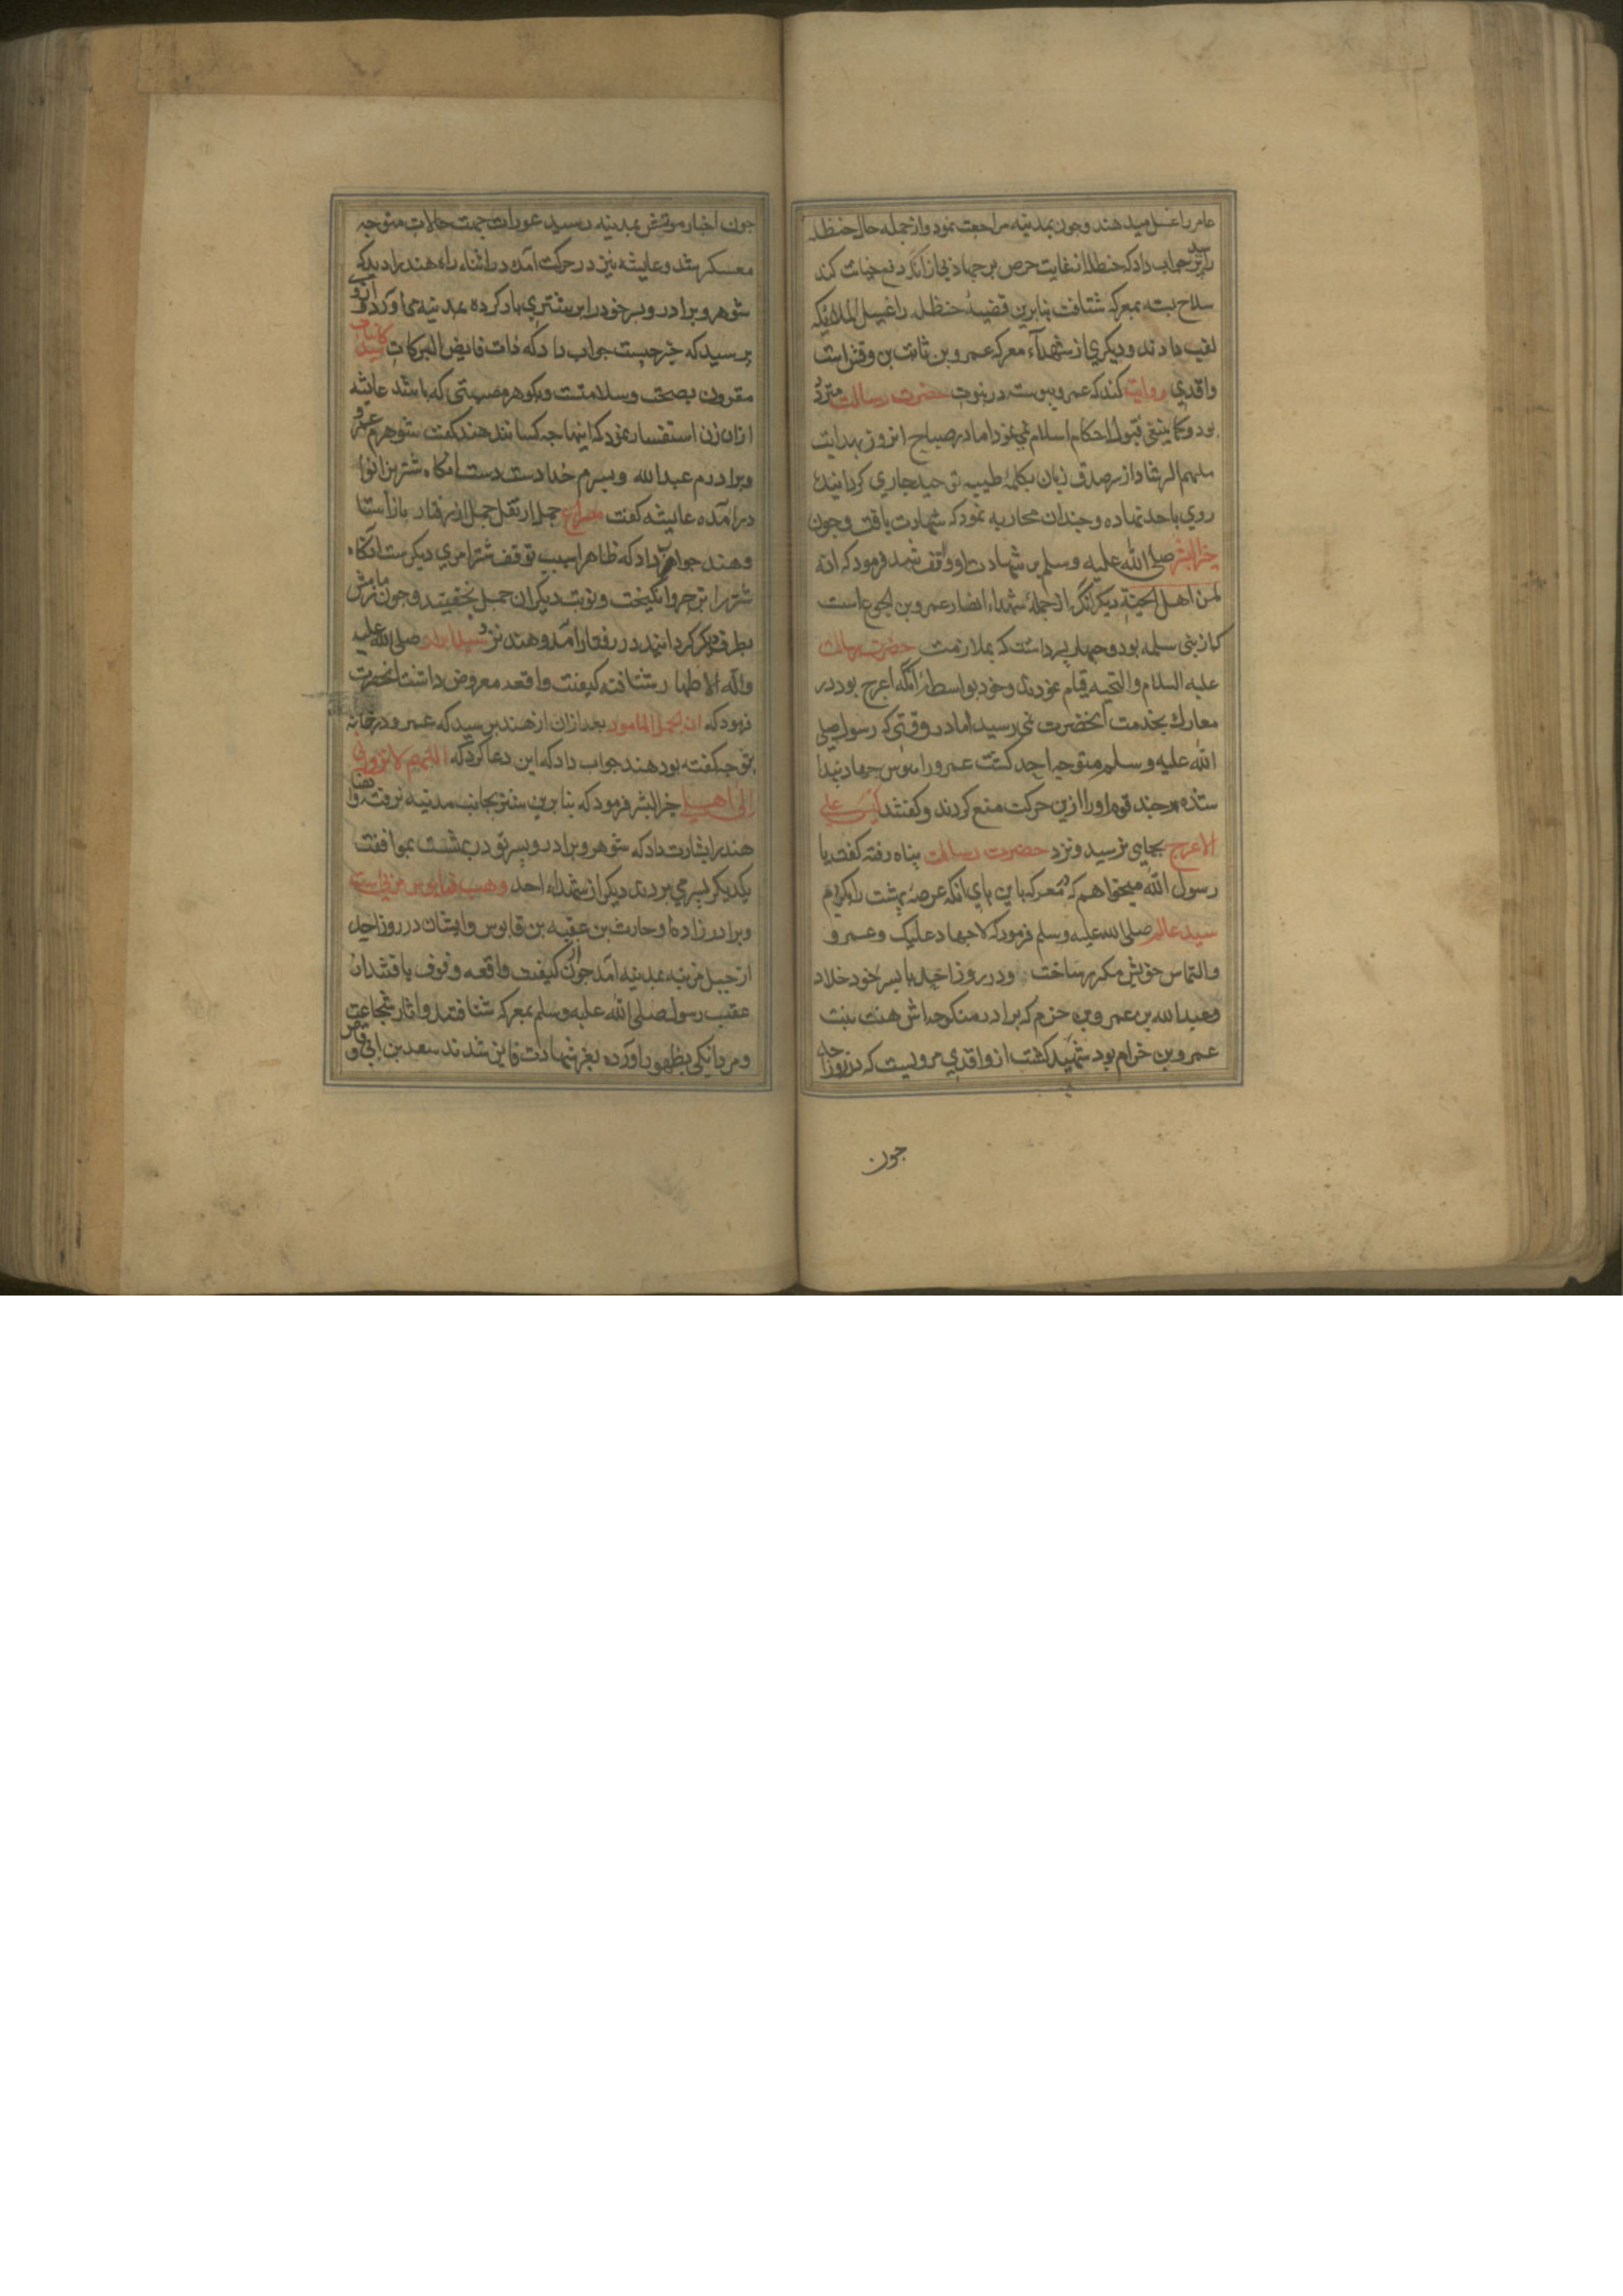 عامر را غسل میدهند و چون بمدینه مراجعت نمود و از جمله حال حنظله
جواب داد که حنظله از غایت حرص بر جهاد
سلاح بسته بمعرکه شتافت بنابرین قضیه حنظله را غسیل الملائکه
لقب دادند و دیکری از شهداء معرکه عمرو بن ثابت بن وقش است
واقدی روایت کند که عمرو پیوسته در نبوت حضرت رسالت متردد
بود و کما ینبغی قبول احکام اسلام نمی نمود اما در صباح انروز بهدایت
ملهم الرشاد از سر صدق زبان بکلمهٔ طیبه توحید جاری کردانیده
روی باحد نهاده و چندان محاربه نمود که شهادت یافت و چون
خیر البشر صلی الله علیه وسلم بر شهادت او واقف شد فرمود که انه
لمن اهل الجنة دیکر از جملهٔ شهداء انصار عمرو بن الجموح است
که از بنی سلمه بود و چهار پسر داشت که بملازمت حضرت رسالت
علیه السلام والتحیه قیام نمودندی و خود بواسطهٔ آنکه اعرج بود در
معارک بخدمت آنحضرت نمی رسید اما در وقتی که رسول صلی
الله علیه وسلم متوجه احد کشت عمرو را هوس جهاد پیدا
شده هر چند قوم او را ازین حرکت منع کردند و کفتند لیس علی
الاعرج بجایی نرسید و نزد حضرت رسالت پناه رفته کفت یا
رسول الله میخواهم که در معرکه باین پای لنک عرصهٔ بهشت را
سید عالم صلی الله علیه وسلم فرمود که لا جهاد علیک و عمرو
والتماس خویش مکرر ساخت و در روز احد با پسر خود خلاد
و عبدالله بن عمرو بن حزم که برادر منکوحه اش هند بنت
عمرو بن حرام بود شهید کشت از واقدی مرویست که در روز احد
چون
چون اخبار موحش بمدینه رسید عورات جهت حالات متوجه
معسکر شد و عایشه نیز در حرکت آمده در اثناء راه هند را دید که
شوهر و برادر و پسر خود را بر شتری بار کرده بمدینه می آورد از وی
پرسید که خبر چیست جواب داد که ذات فایض البرکات سید کاینات
مقرون بصحت و سلامتست و هر مصیبتی که باشد عایشه
ازان زن استفسار نمود که اینها چه کسانند هند کفت شوهرم عمرو
و برادرم عبدالله و پسرم خلادست آنکاه شتر بزانو
درآمده عایشه کفت از ثقل حمل از رفتار باز استاد
و هند جواب داد که ظاهرا سبب توقف شتر امری دیکرست آنکاه
شتر را بزجر و نوبت دیکر ان جمل بخفتید و چون
بطرف دیکر کردانیدند در رفتار آمد و هند نزد سید ابرار صلی الله علیه
وآله الاطهار شتافته کیفیت واقعه معروض داشت آنحضرت
فرمود که ان الجمل المامور بعد ازان از هند پرسید که عمرو در خانه
چه کفته بود هند جواب داد که این دعا کرد که اللهم لا تردنی
الی اهلی خیر البشر فرمود که بنا برین شتر بجانب مدینه نرفت
هند را بشارت داد که شوهر و برادر و پسر تو در بهشت بموافقت
یکدیکر بسر می برند دیکر از شهداء احد وهب بن قابوس مزنی است
و برادرزاده او حارث بن عقبه بن قابوس و ایشان در روز احد
از جبل مزینه بمدینه آمد چون از کیفیت واقعه وقوف یافتند از
عقب رسول صلی الله علیه وسلم بمعرکه شتافتند و اثار شجاعت
و مردانکی بظهور آورده بعز شهادت فایز شدند سعد بن ابی وقاص